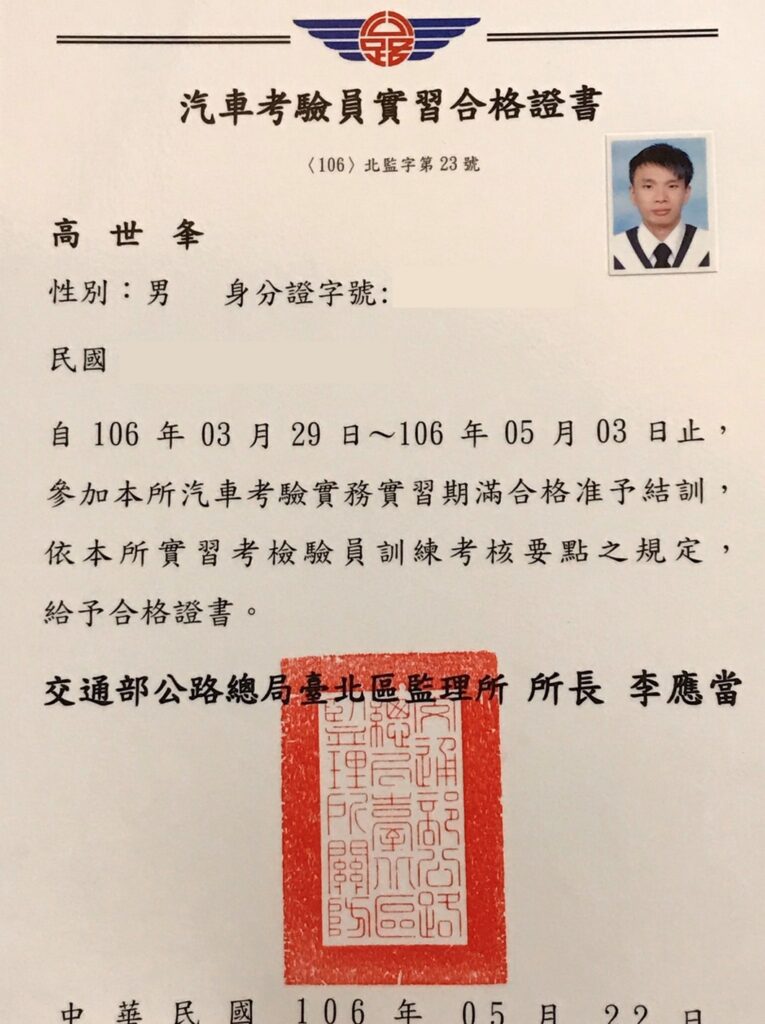 汽車考驗員實習合格證書
〈106〉北監字第23號
高世夆
性別：男 身分證字號:
民國
自 106 年 03 月 29 日～106 年 05 月 03 日止，
參加本所汽車考驗實務實習期滿合格准予結訓，
依本所實習考檢驗員訓練考核要點之規定，
給予合格證書。
交通部公路總局臺北區監理所 所長 李應當
交通部公路
總局臺北區
監理所關防
中華民國 106 年 05 月 22 日